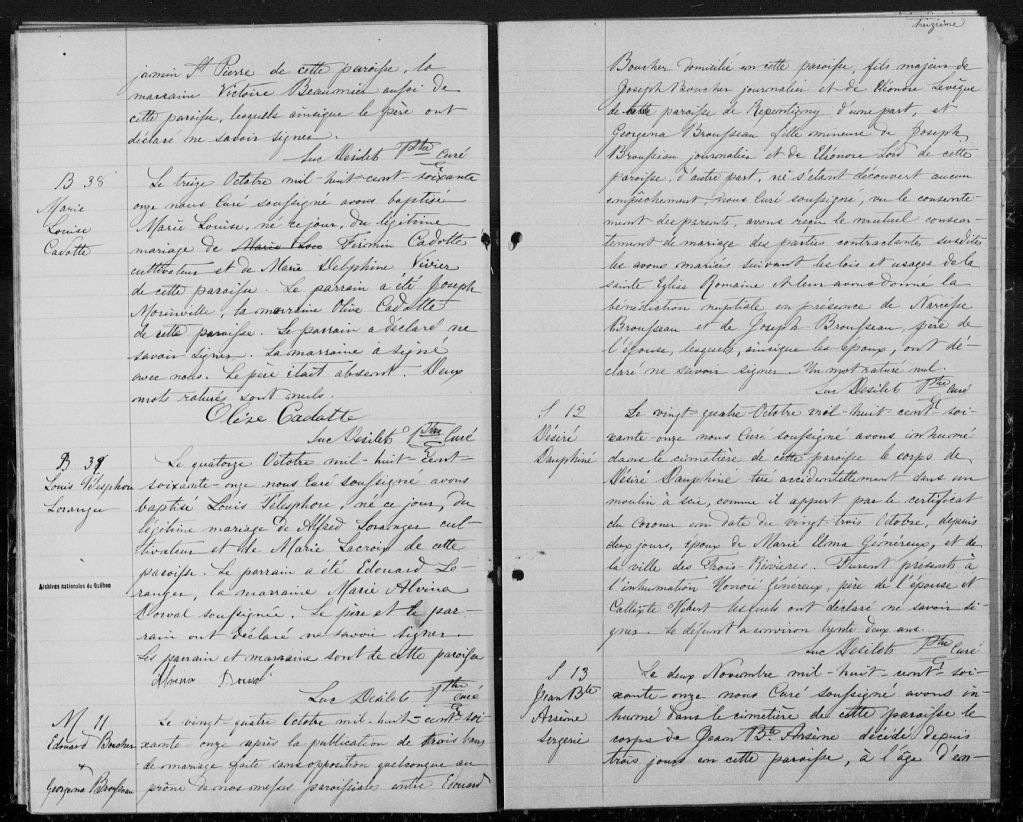 jamin St Pierre de cette paroisse, la
marraine Victoire Beaumier aussi de
cette paroisse, lesquels ainsi que le père ont
déclaré ne savoir signer.
Luc Desilets Ptre Curé
B 38
Marie
Louise
Cadotte
Le treize Octobre mil-huit-cent-soixante
onze nous Curé soussigné avons baptisé
Marie Louise, né ce jour, du légitime
mariage de Firmin Cadotte
cultivateur et de Marie Delphine Vivier
de cette paroisse. Le parrain a été Joseph
Morinville, la marraine Olive Cadotte
de cette paroisse. Le parrain a déclaré ne
savoir signer. La marraine a signé
avec nous. Le père était absent. Deux
mots raturés sont nuls.
Olize Cadotte
Luc Desilets Ptre Curé
B 39
Louis Télesphore
Loranger
Le quatorze Octobre mil-huit-cent-
soixante-onze nous Curé soussigné avons
baptisé Louis Télesphore, né ce jour, du
légitime mariage de Alfred Loranger cul-
tivateur et de Marie Lacroix de cette
paroisse. Le parrain a été Edouard Lo-
ranger, la marraine Marie Alvina
Dorval soussignée. Le père et le par-
rain ont déclaré ne savoir signer.
Les parrain et marraine sont de cette paroisse
Alvina Dorval
Luc Desilets Ptre Curé
Archives nationales du Québec
M 11
Edouard Boucher
+
Georgena Brousseau
Le vingt quatre Octobre mil-huit-cent-soi-
xante-onze après la publication de trois bans
de mariage faite sans opposition quelconque au
prône de nos messes paroissiales entre Edouard
treizième
Boucher domicilié en cette paroisse, fils majeur de
Joseph Boucher journalier et de Eléonore Levêque
de paroisse de Repentigny d'une part, et
Georgena Brousseau fille mineure de Joseph
Brousseau journalier et de Eléonore Lord de cette
paroisse, d'autre part, ne s'étant découvert aucun
empêchement, nous Curé soussigné, vu le consente-
ment des parents, avons reçu le mutuel consen-
tement de mariage des parties contractantes susdites
les avons mariés suivant les lois et usages de la
sainte Eglise Romaine et leur avons donné la
bénédiction nuptiale en présence de Narcisse
Brousseau et de Joseph Brousseau, père de
l'épouse, lesquels, ainsi que les époux, ont dé-
claré ne savoir signer. Un mot raturé nul.
Luc Desilets Ptre Curé
S 12
Désiré
Dauphiné
Le vingt quatre Octobre mil-huit-cent-soi-
xante-onze nous Curé soussigné avons inhumé
dans le cimetière de cette paroisse le corps de
Désiré Dauphiné tué accidentellement dans un
moulin à scie, comme il appert par le certificat
du Coroner en date du vingt-trois Octobre, depuis
deux jours, époux de Marie Elma Généreux, et de
la ville des Trois-Rivières. Furent présents à
l'inhumation Honoré Généreux, père de l'épouse et
Calixte Hebert lesquels ont déclaré ne savoir si-
gner. Le défunt a environ trente deux ans.
Luc Desilets Ptre Curé
S 13
Jean Bte
Arsène
Sergerie
Le deux Novembre mil-huit-cent-soi-
xante-onze nous Curé soussigné avons in-
humé dans le cimetière de cette paroisse le
corps de Jean Bte Arsène décédé depuis
trois jours en cette paroisse, à l'âge d'en-